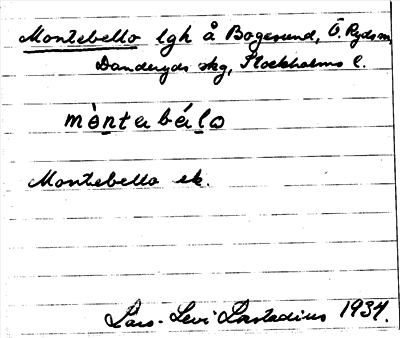 Montebello lgh å Bogesund, Ö. Ryds sn,
Danderyds skg, Stockholms l.
mòntabálo
Montebello ek.
Lars-Levi Læstadius 1934.